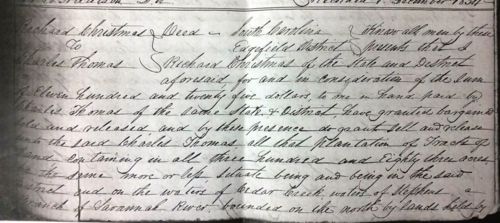 Richard Christmas Deed South Carolina Know all men by these
To Edgefield District presents that I
Charles Thomas Richard Christmas of the State and District
aforesaid, for and in consideration of the Sum
of Eleven hundred and twenty five dollars to me in hand paid by
Charles Thomas of the Same State & District, have granted bargained
Sold and released and by these presence do grant sell and release
unto the said Charles Thomas, all that plantation of Tracts of
Land Containing in all three hundred and Eighty three acres
be the same more or less situate being and being in the said
District and on the waters of Cedar Creek waters of Stephens a
branch of Savannah River bounded on the north by lands held by